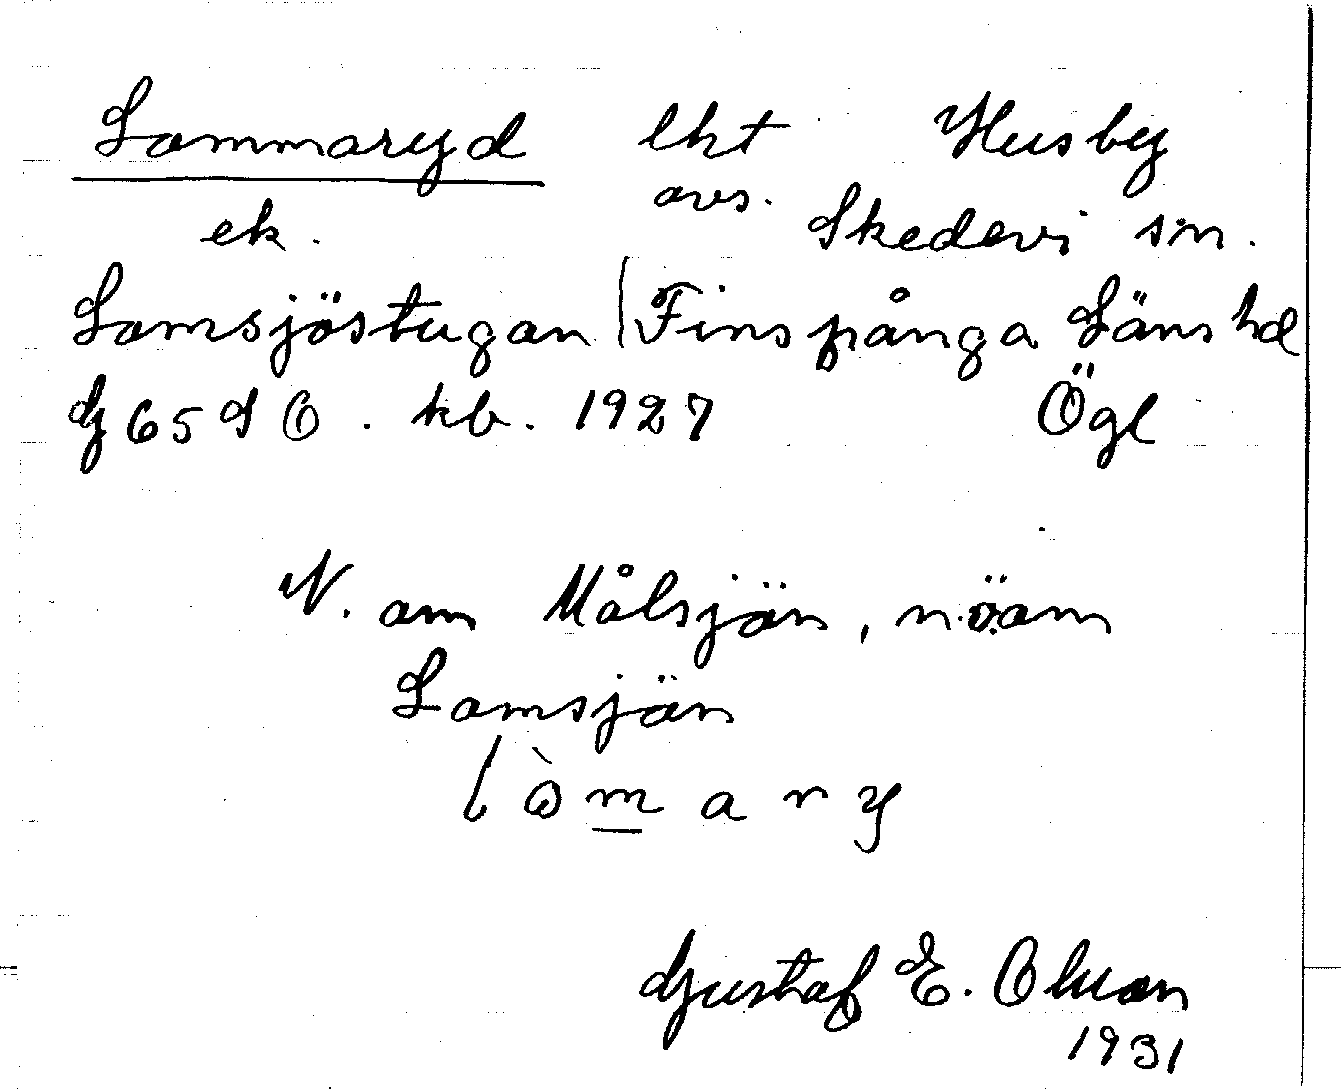 Sommaryd lht Husby
avs.
ek. Skedevi sn.
Somsjöstugan Finspånga Läns hd
G 65 S Ö. kb. 1927 Ögl
N. om Målsjön, n.ö.om
Somsjön
m a r y
Gustaf E. Olsson
1931